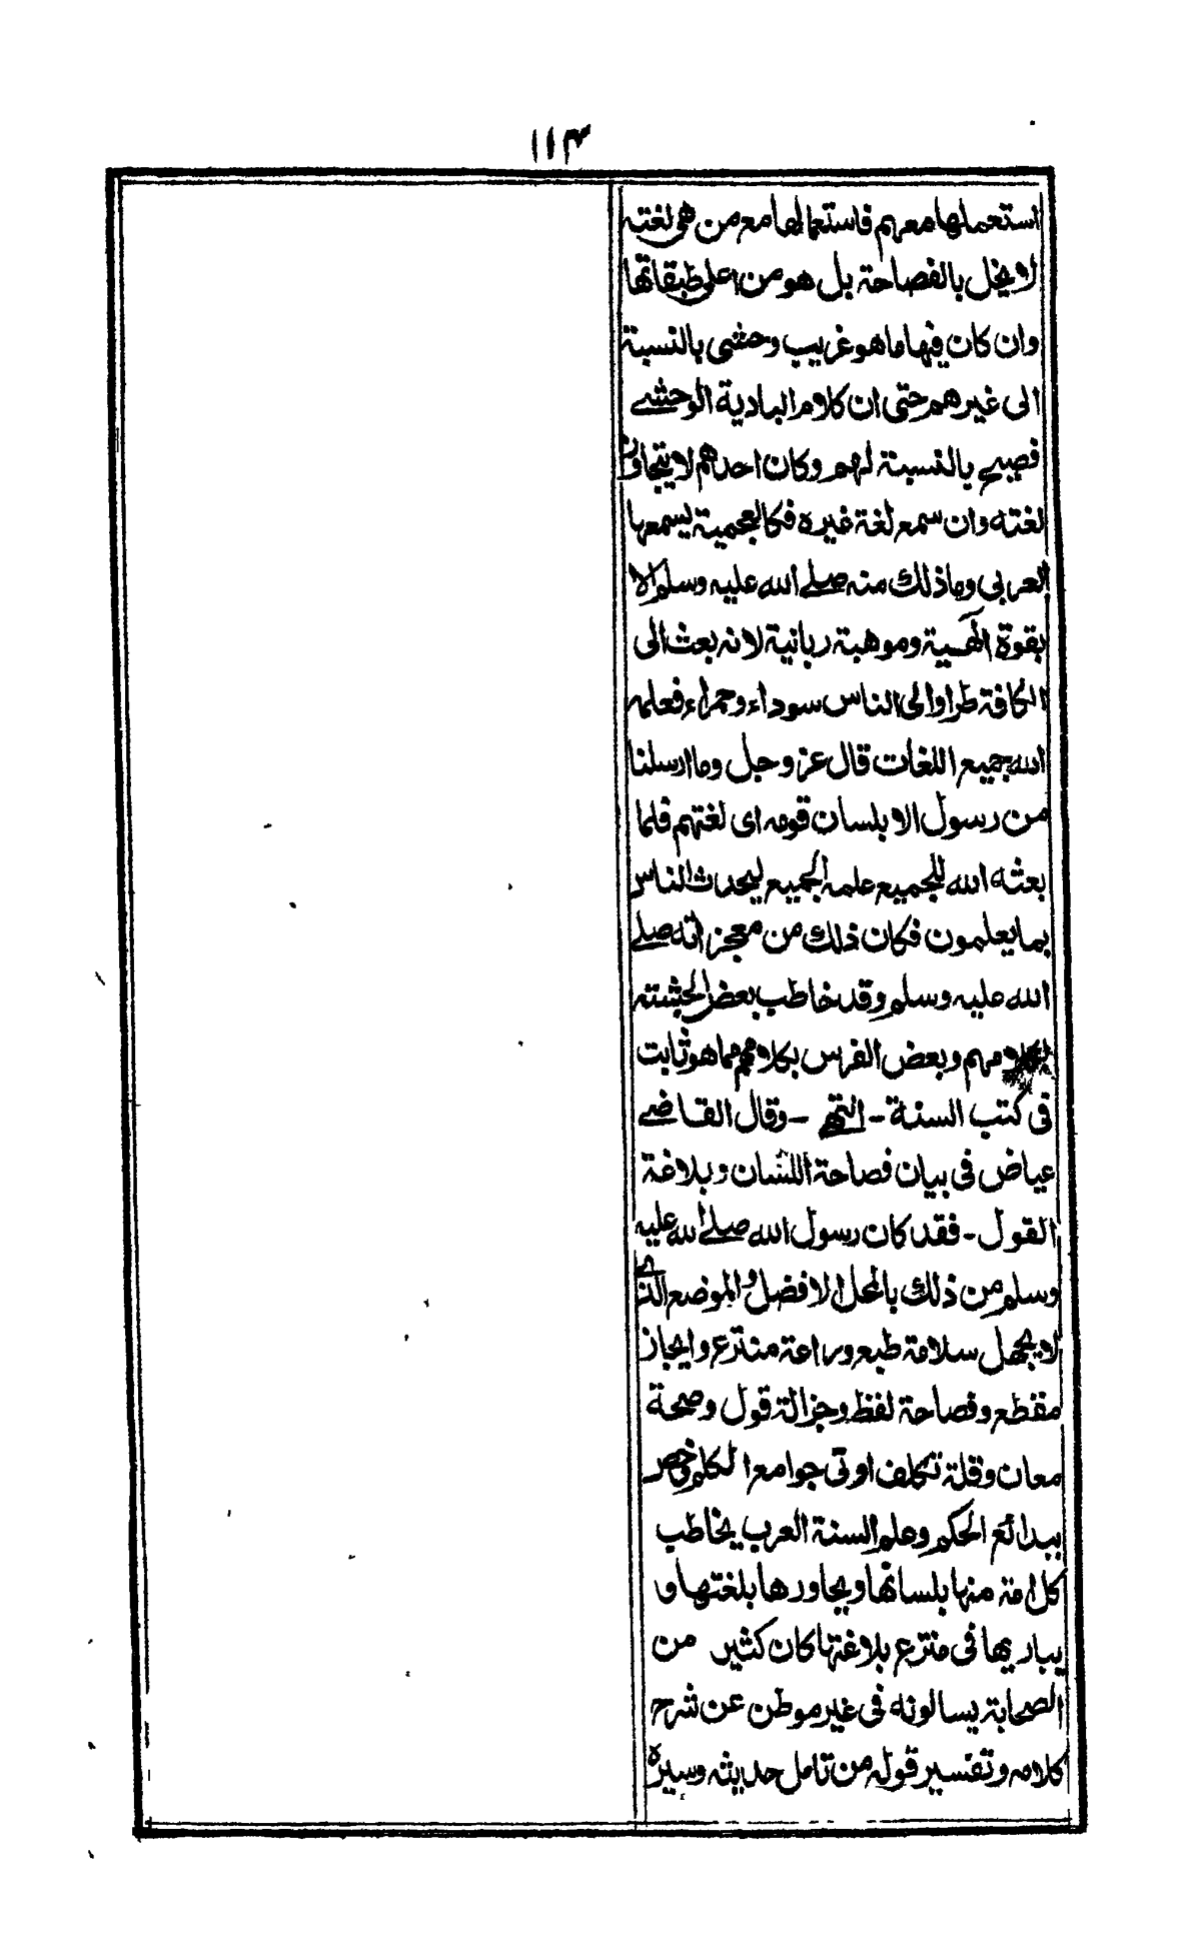 ١١٣
استعملها معهم فاستعمالها مع من هی لغته
لا یخل بالفصاحة بل هو من اعلی طبقاتها
وان کان فیها ما هو غریب وحشی بالنسبة
الی غیرهم حتی ان کلام البادیة الوحشے
فصیح بالنسبة لهم وکان احدهم لا یتجاوز
لغته وان سمع لغة غیره فکالعجمیة یسمعها
العربی وما ذلك منه صلے الله علیه وسلم الا
بقوة الٓهیة وموهبة ربانیة لانه بعث الی
الکافة طرا والی الناس سوداء وحمراء فعلمه
الله جمیع اللغات قال عز وجل وما ارسلنا
من رسول الا بلسان قومه ای لغتهم فلما
بعثه الله للجمیع علمه الجمیع لیحدث الناس
بما یعلمون فکان ذلك من معجزاته صلے
الله علیه وسلم وقد خاطب بعض الحبشة
بکلامهم وبعض الفرس بکلامهم مما هو ثابت
فی کتب السنة - انتهے - وقال القاضے
عیاض فی بیان فصاحة اللسان وبلاغة
القول - فقد کان رسول الله صلے الله علیه
وسلم من ذلك بالمحل الافضل والموضع الذے
لا یجهل سلامة طبع وبراعة منتزع وایجاز
مقطع وفصاحة لفظ وجزالة قول وصحة
معان وقلة تکلف اوتی جوامع الکلم وخص
ببدائع الحکم وعلم السنة العرب یخاطب
کل امة منها بلسانها ویحاورها بلغتها و
یباریها فی منتزع بلاغتها کان کثیر من
الصحابة یسالونه فی غیر موطن عن شرح
کلامه وتفسیر قوله من تامل حدیثه وسیره